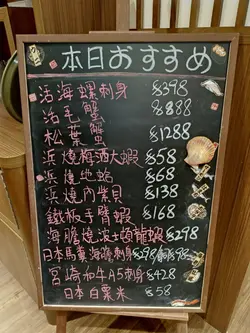 本日おすすめ
活海螺刺身 $398
活毛蟹 $888
松葉蟹 $1288
浜燒梅酒大蝦 $58
浜燒地蛤 $68
浜燒內臓貝 $138
鐵板手臂蝦 $168
海膽燒波士頓龍蝦 $298
日本馬糞海膽刺身 $298
宮崎和牛A5刺身 $428
日本白粟米 $58